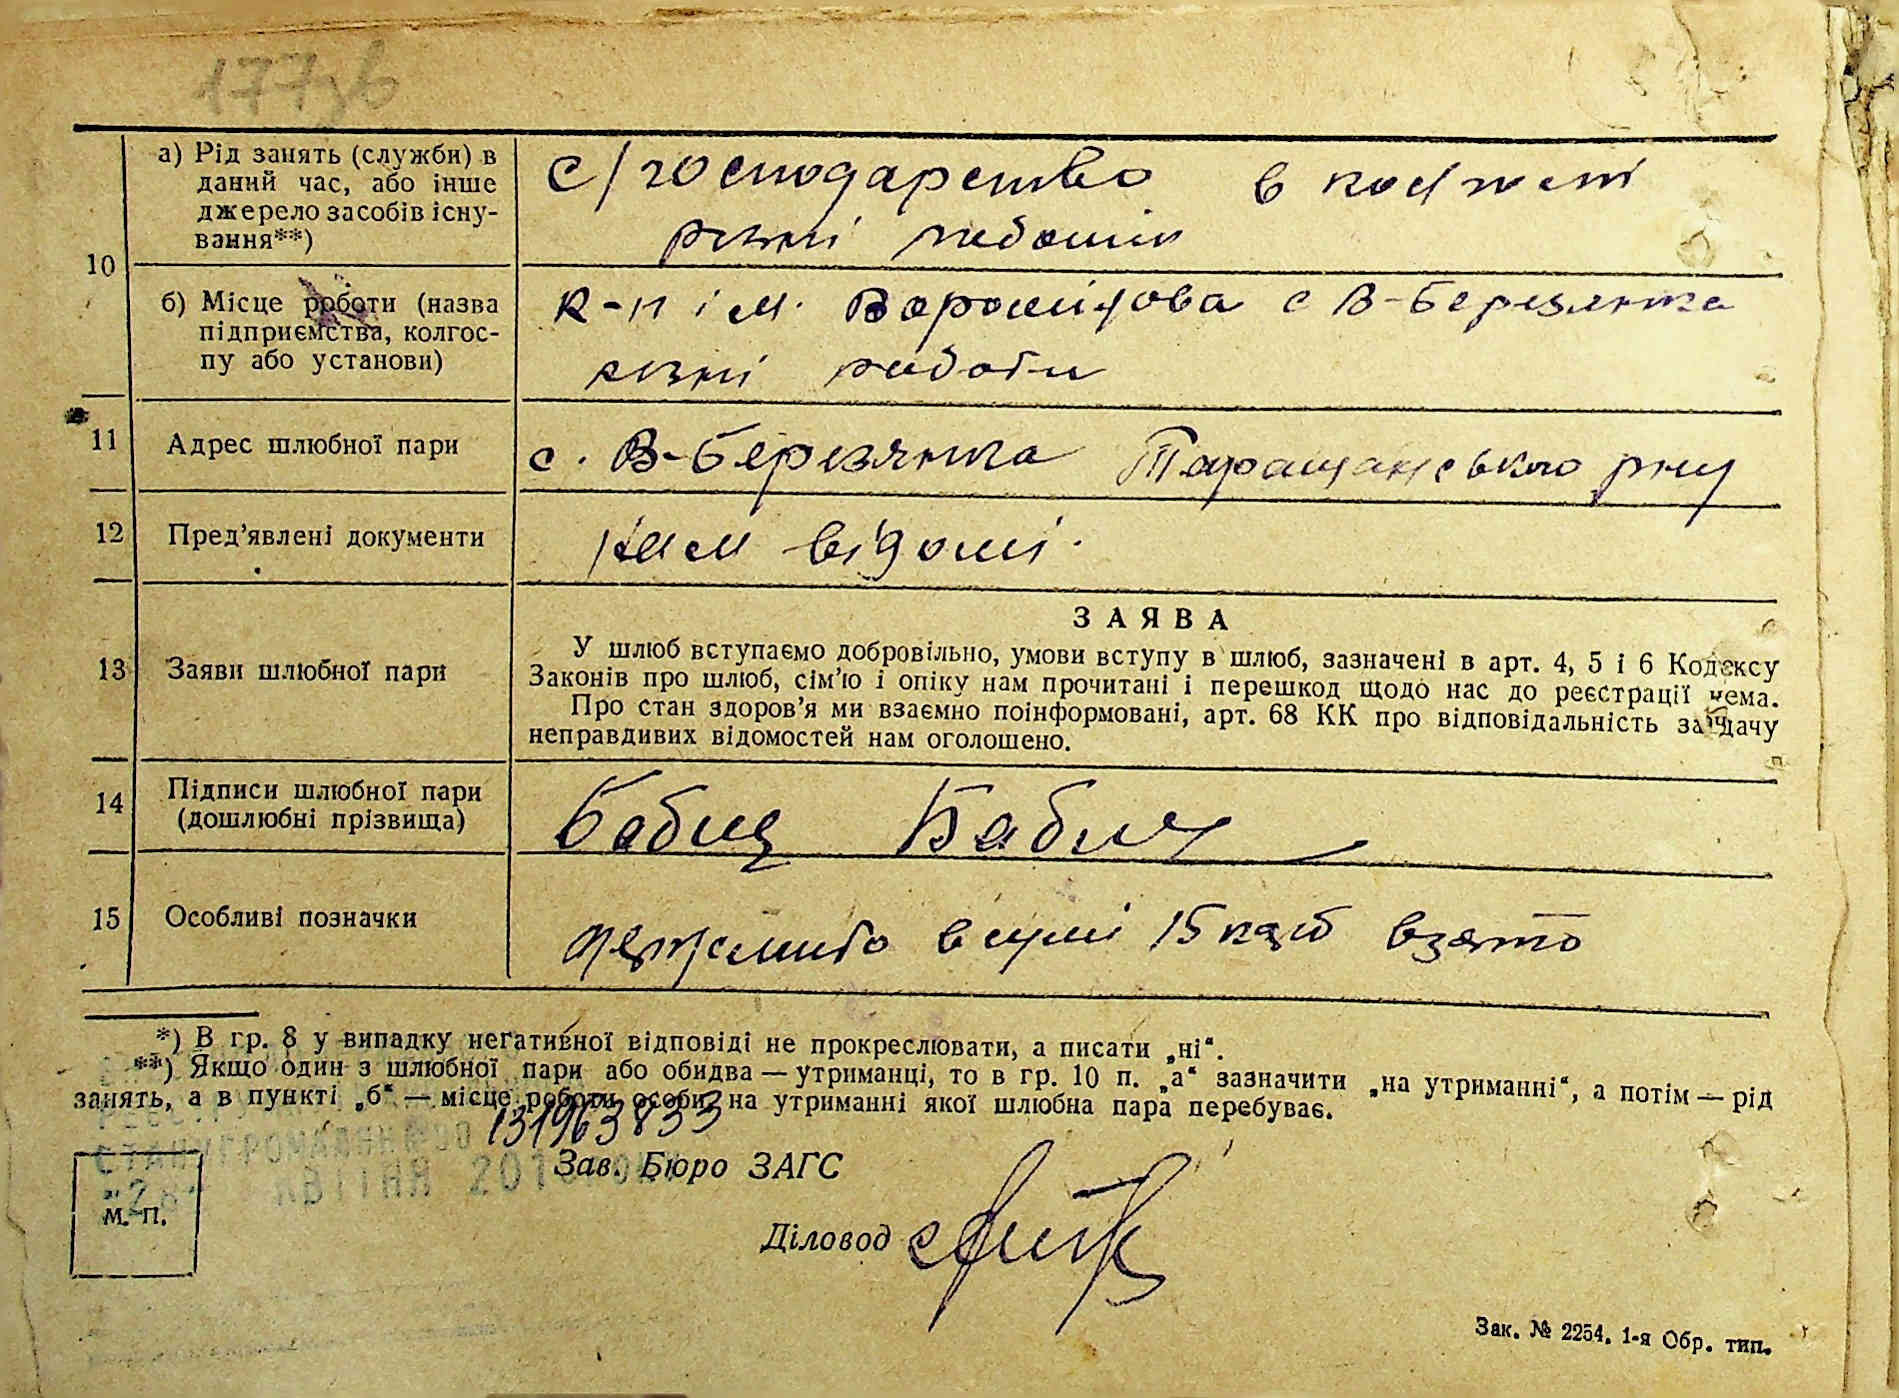 177зв
а) Рід занять (служби) в
даний час, або інше
джерело засобів існу-
вання**)
с/господарство в колгоспі
різні работи
10
б) Місце роботи (назва
підприємства, колгос-
пу або установи)
к-п ім. Ворошилова с В-Березянка
різні работи
11 Адрес шлюбної пари
с. В-Березянка Таращанського р-ну
12 Пред’явлені документи
відомі.
13 Заяви шлюбної пари
ЗАЯВА
У шлюб вступаємо добровільно, умови вступу в шлюб, зазначені в арт. 4, 5 і 6 Кодексу
Законів про шлюб, сім’ю і опіку нам прочитані і перешкод щодо нас до реєстрації нема.
Про стан здоров’я ми взаємно поінформовані, арт. 68 КК про відповідальність за дачу
неправдивих відомостей нам оголошено.
14 Підписи шлюбної пари
(дошлюбні прізвища)
Бабич Бабич
15 Особливі позначки
держмито в сумі 15 карб взято
*) В гр. 8 у випадку негативної відповіді не прокреслювати, а писати „ні“.
**) Якщо один з шлюбної пари або обидва — утриманці, то в гр. 10 п. „а“ зазначити „на утриманні“, а потім — рід
занять, а в пункті „б“ — місце роботи особи, на утриманні якої шлюбна пара перебуває.
131963833
Зав. Бюро ЗАГС
КВІТНЯ
М. П.
Діловод
Зак. № 2254. 1-я Обр. тип.